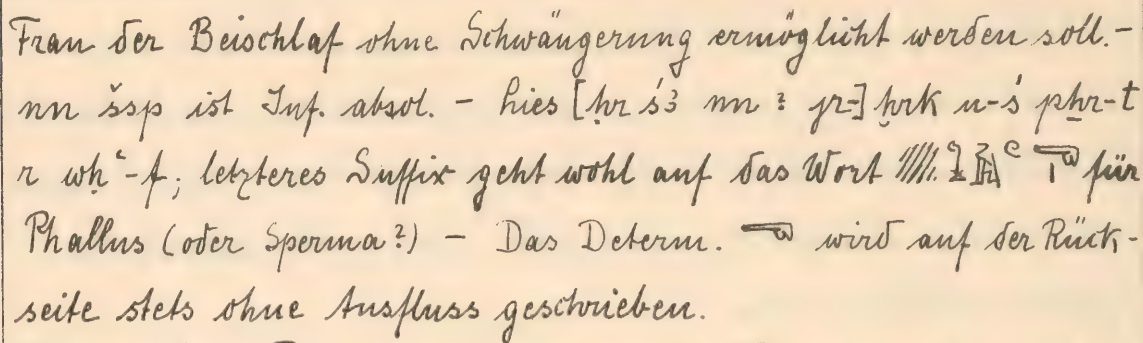 Frau der Beischlaf ohne Schwängerung ermöglicht werden soll. -
nn šsp ist Inf. absol. - hies [ḥr śꜣ nn ? jr-] ḫrk n-ś pẖr-t
r wḥꜥ-f; letzteres Suffix geht wohl auf das Wort für
Phallus (oder Sperma?) - Das Determ. wird auf der Rück-
seite stets ohne Ausfluss geschrieben.